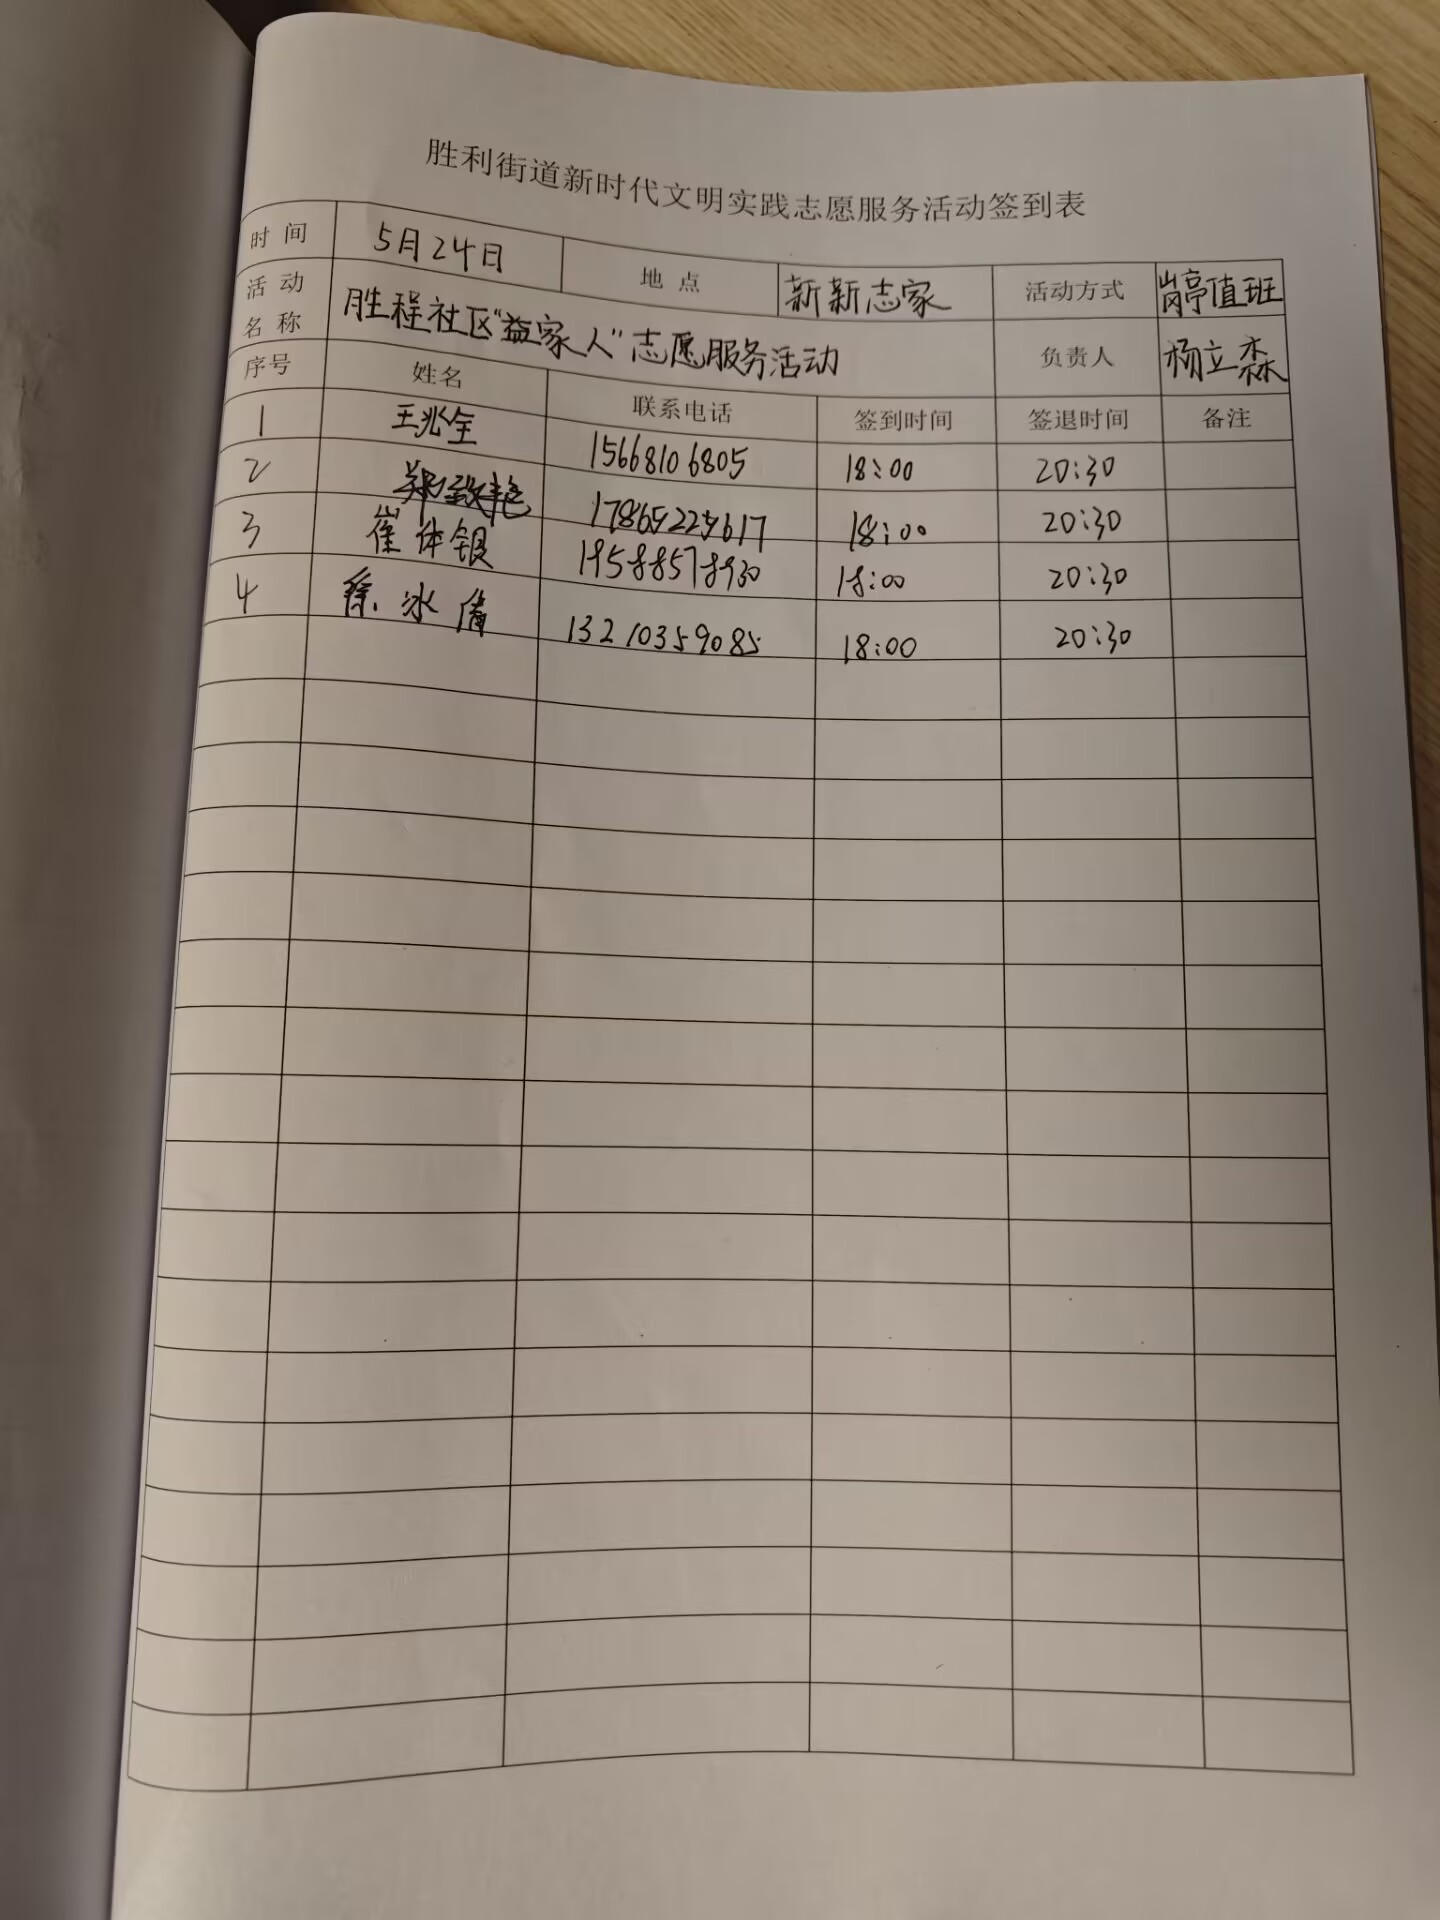 胜利街道新时代文明实践志愿服务活动签到表
时间 5月24日 地点 新新志家 活动方式 岗亭值班
活动名称 胜程社区“益家人”志愿服务活动 负责人 杨立森
序号 姓名 联系电话 签到时间 签退时间 备注
1 王兆全 15668106805 18:00 20:30
2 郑致艳 17865225617 18:00 20:30
3 崔体银 19588578930 18:00 20:30
4 徐冰倩 13210359085 18:00 20:30